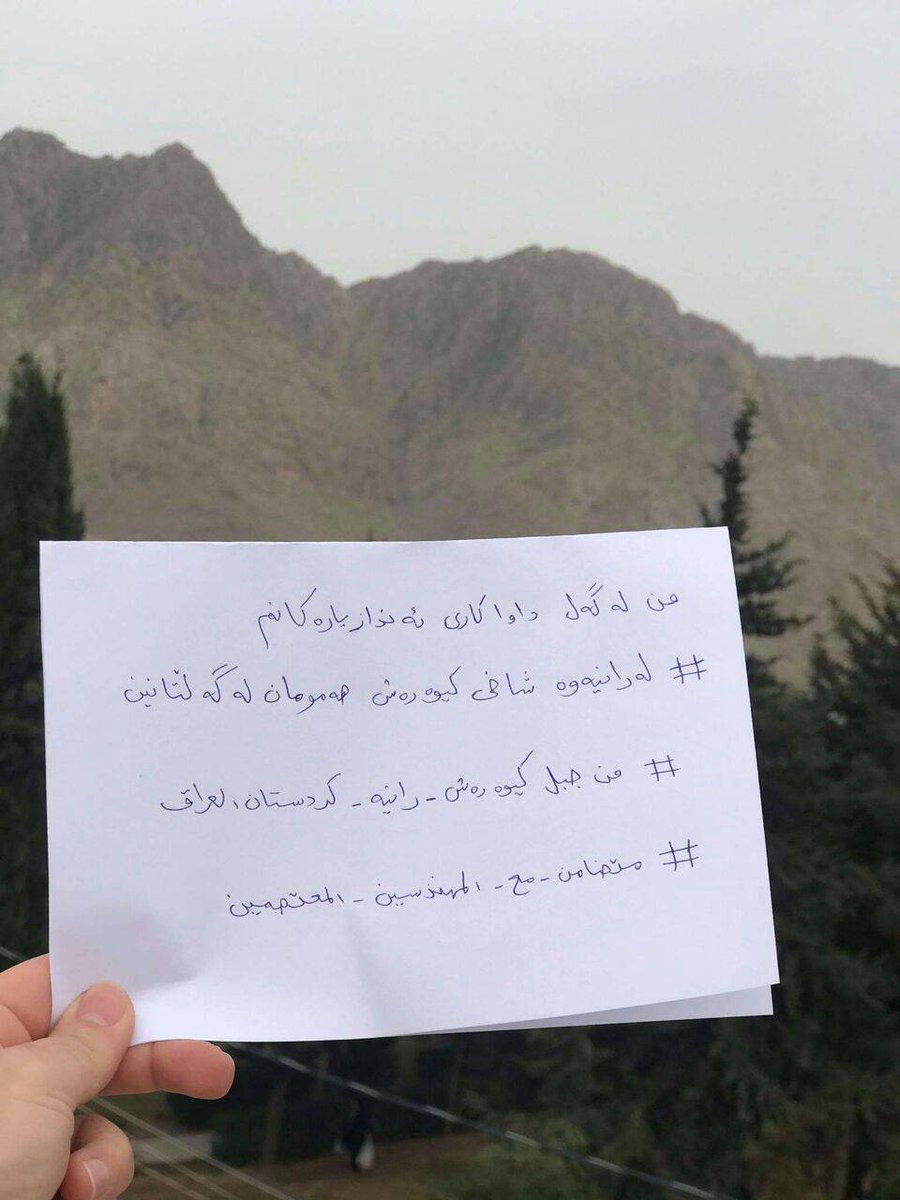 من لەگەڵ داواکاری ئەندازیارەکانم
# لەرانیەوە شاخی کێوەرەش هەموومان لەگەڵتانین
# من جبل کێوەرەش - رانیه - کردستان العراق
# متضامن - مع - المهندسين - المعتصمين